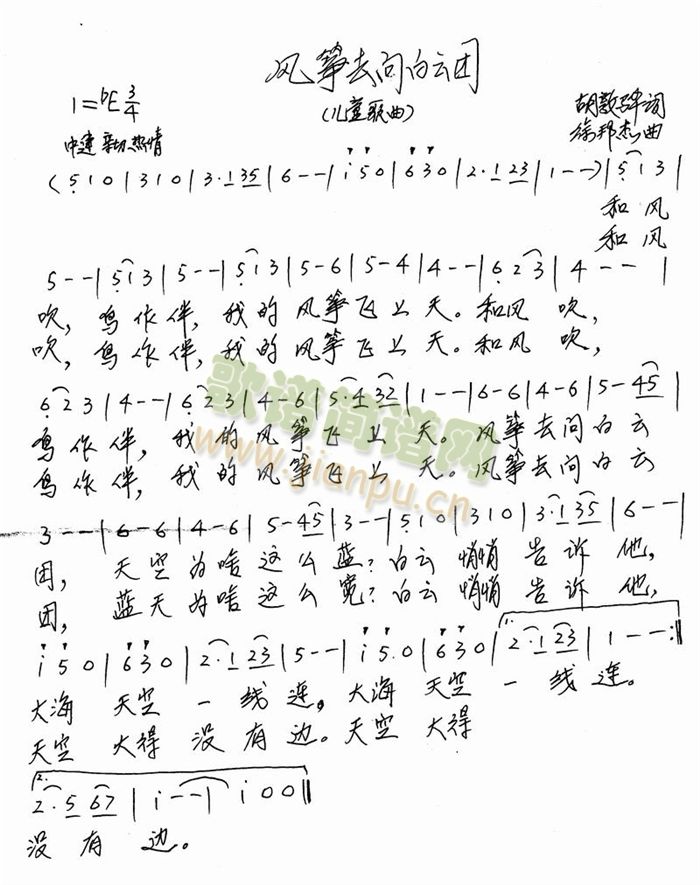 风筝去问白云团
(儿童歌曲)
1=bE 3/4
中速 亲切 热情
词
徐邦杰曲
(5 1 0 | 3 1 0 | 3·1 35 | 6 - - | i 5 0 | 6 3 0 | 2·1 23 | 1 - -) | 5 1 3 |
和风
和风
5 - - | 5 1 3 | 5 - - | 5 1 3 | 5 - 6 | 5 - 4 | 4 - - | 6 2 3 | 4 - - |
吹, 鸟作伴, 我的风筝飞上天。和风吹,
吹, 鸟作伴, 我的风筝飞上天。和风吹,
6 2 3 | 4 - - | 6 2 3 | 4 - 6 | 5·4 32 | 1 - - | 6 - 6 | 4 - 6 | 5 - 45 |
鸟作伴, 我的风筝飞上天。风筝去问白云
鸟作伴, 我的风筝飞上天。风筝去问白云
歌谱简谱网
www.jianpu.cn
3 - - | 6 - 6 | 4 - 6 | 5 - 45 | 3 - - | 5 1 0 | 3 1 0 | 3·1 35 | 6 - - |
团, 天空为啥这么蓝?白云悄悄告诉他,
团, 蓝天为啥这么宽?白云悄悄告诉他,
i 5 0 | 6 3 0 | 2·1 23 | 5 - - | i 5. 0 | 6 3 0 | 1. 2·1 23 | 1 - - :||
大海天空一线连。大海天空一线连。
天空大得没有边。天空大得
2. 2·5 67 | i - - | i 0 0 ||
没有边。